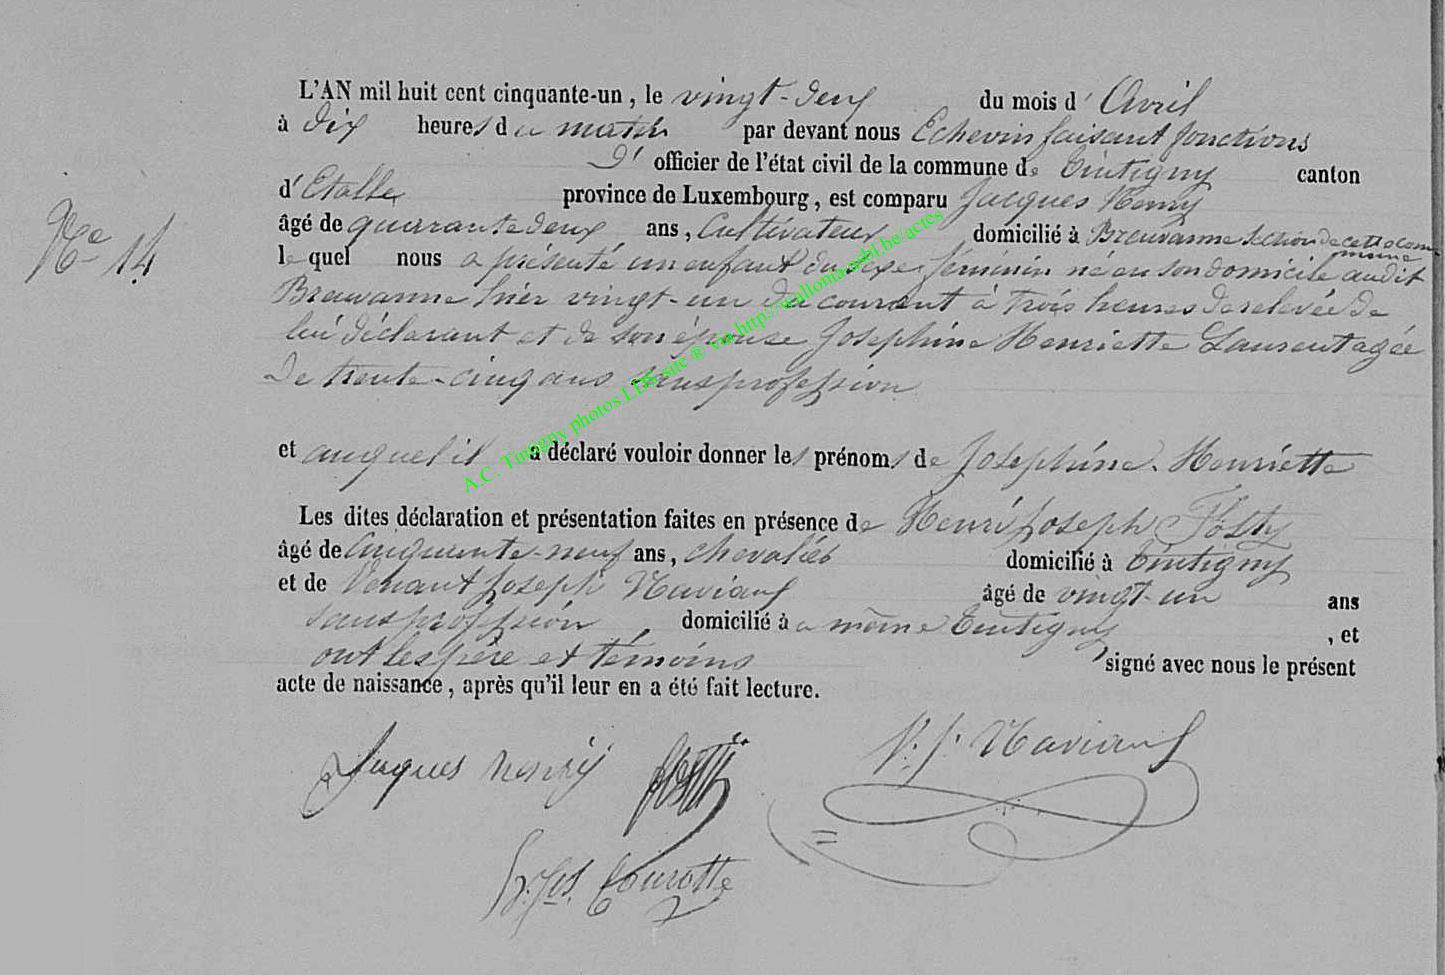 L'AN mil huit cent cinquante-un, le vingt-deux du mois d' Avril
à dix heures du matin par devant nous Echevin faisant fonctions
d' officier de l'état civil de la commune de Tintigny canton
d' Etalle province de Luxembourg, est comparu Jacques Henry
âgé de quarrante deux ans, Cultivateur domicilié à Breuvanne section de cette com
mune
le quel nous a présenté un enfant du sexe féminin né en son domicile audit
Breuvanne hier vingt-un du courant à trois heures de relevée de
lui déclarant et de son épouse Joséphine Henriette Laurent agée
de trente-cinq ans sans profession
et auquel il a déclaré vouloir donner les prénoms de Joséphine Henriette
N° 14
Les dites déclaration et présentation faites en présence de Henri Joseph
âgé de Cinquante-neuf ans, chevalier domicilié à Tintigny
et de Venant Joseph Naviaux âgé de vingt-un ans
sans profession domicilié à a même Tintigny, et
ont les père et témoins signé avec nous le présent
acte de naissance, après qu'il leur en a été fait lecture.
Jaques henry V. J. Naviaux
A.C. Tintigny photos LDS site ® via http://wallonia-asbl.be/actes